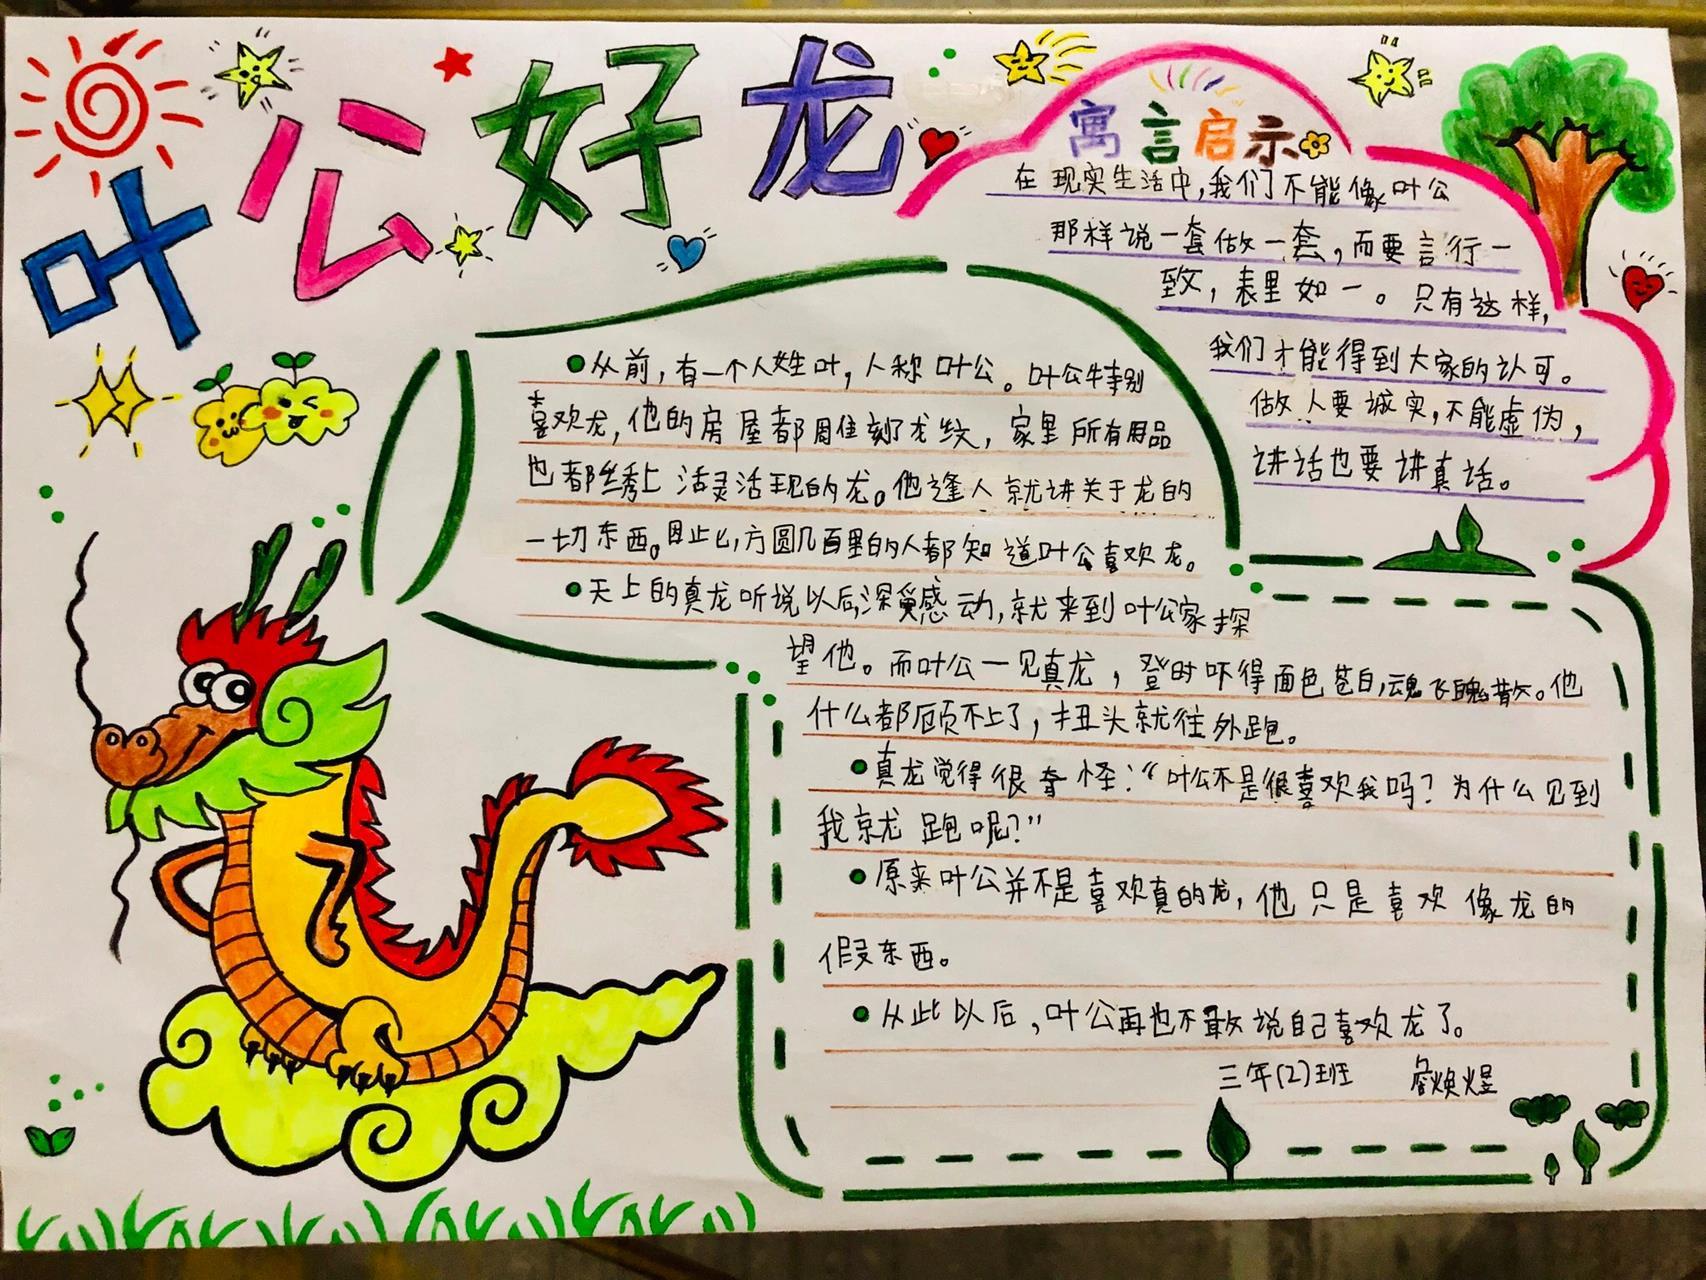 叶公好龙
寓言启示
在现实生活中,我们不能像叶公
那样说一套做一套,而要言行一
致,表里如一。只有这样,
我们才能得到大家的认可。
做人要诚实,不能虚伪,
讲话也要讲真话。
从前,有一个人姓叶,人称叶公。叶公特别
喜欢龙,他的房屋都周住刻了龙纹,家里所有用品
也都绣上活灵活现的龙。他逢人就讲关于龙的
一切东西。因此,方圆几百里的人都知道叶公喜欢龙。
天上的真龙听说以后,深受感动,就来到叶公家探
望他。而叶公一见真龙,登时吓得面色苍白,魂飞魄散。他
什么都顾不上了,扭头就往外跑。
真龙觉得很奇怪:“叶公不是很喜欢我吗?为什么见到
我就跑呢?”
原来叶公并不是喜欢真的龙,他只是喜欢像龙的
假东西。
从此以后,叶公再也不敢说自己喜欢龙了。
三年(2)班 焕煜